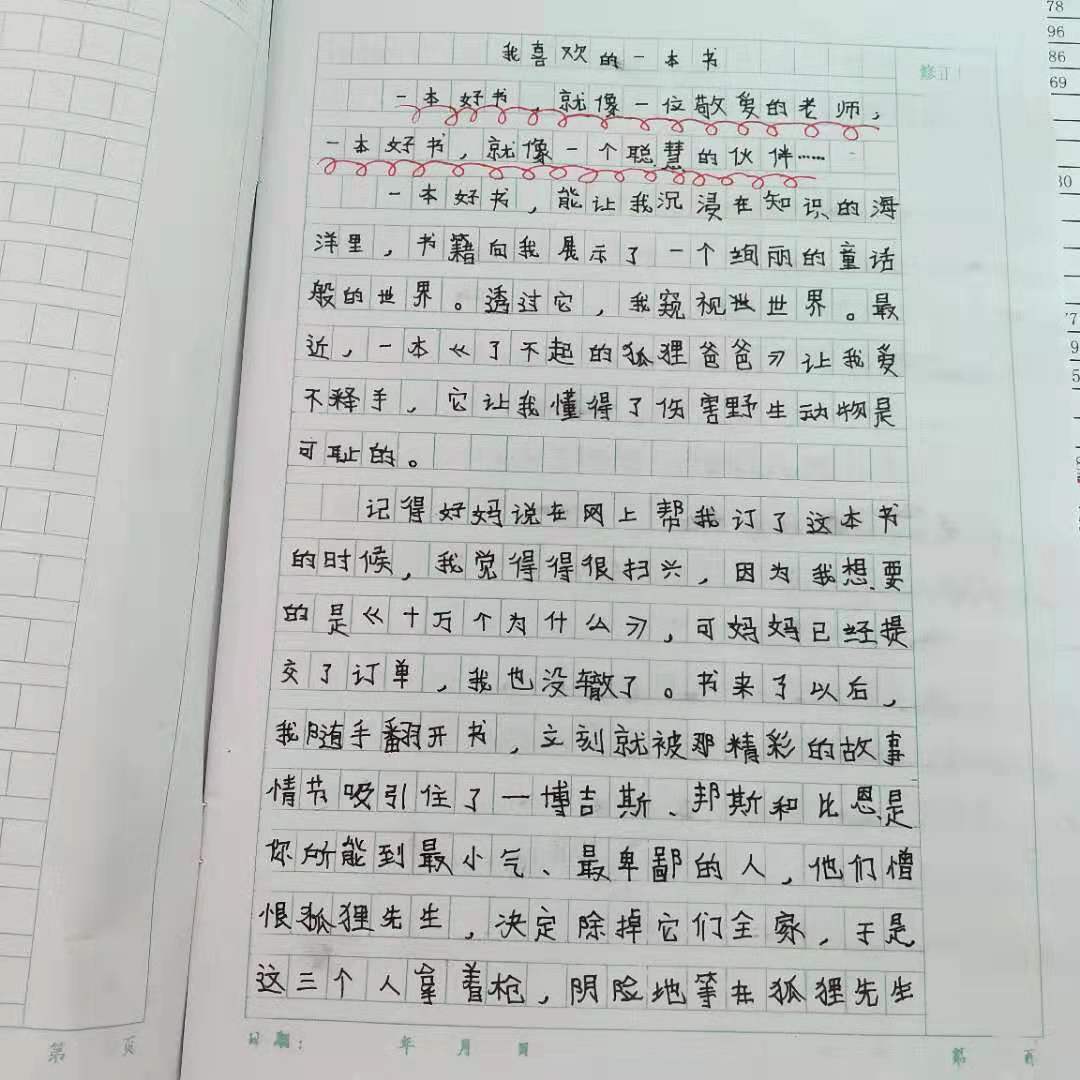 我喜欢的一本书
修订
一本好书，就像一位敬爱的老师，
一本好书，就像一个聪慧的伙伴……
一本好书，能让我沉浸在知识的海
洋里，书籍向我展示了一个绚丽的童话
般的世界。透过它，我窥视世世界。最
近，一本《了不起的狐狸爸爸》让我爱
不释手，它让我懂得了伤害野生动物是
可耻的。
记得好妈说在网上帮我订了这本书
的时候，我觉得得很扫兴，因为我想要
的是《十万个为什么》，可妈妈已经提
交了订单，我也没辙了。书来了以后，
我随手翻开书，立刻就被那精彩的故事
情节吸引住了一博吉斯、邦斯和比恩是
你所能到最小气、最卑鄙的人，他们憎
恨狐狸先生，决定除掉它们全家，于是
这三个人拿着枪，阴险地等在狐狸先生
日期： 年 月 日
第 页
第 页
78
96
86
69